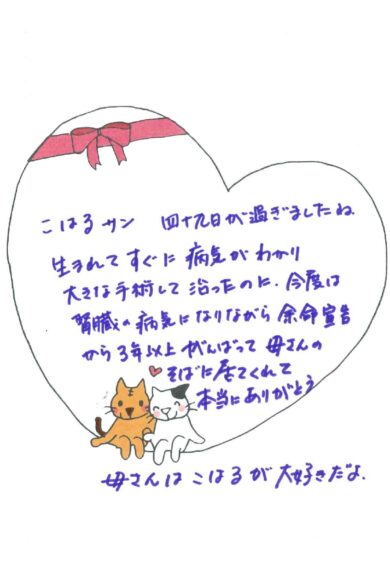 こはるサン 四十九日が過ぎましたね
生まれてすぐに病気がわかり
大きな手術して治ったのに、今度は
腎臓の病気になりながら余命宣告
から3年以上がんばって母さんの
そばに居てくれて
本当にありがとう
母さんはこはるが大好きだよ.